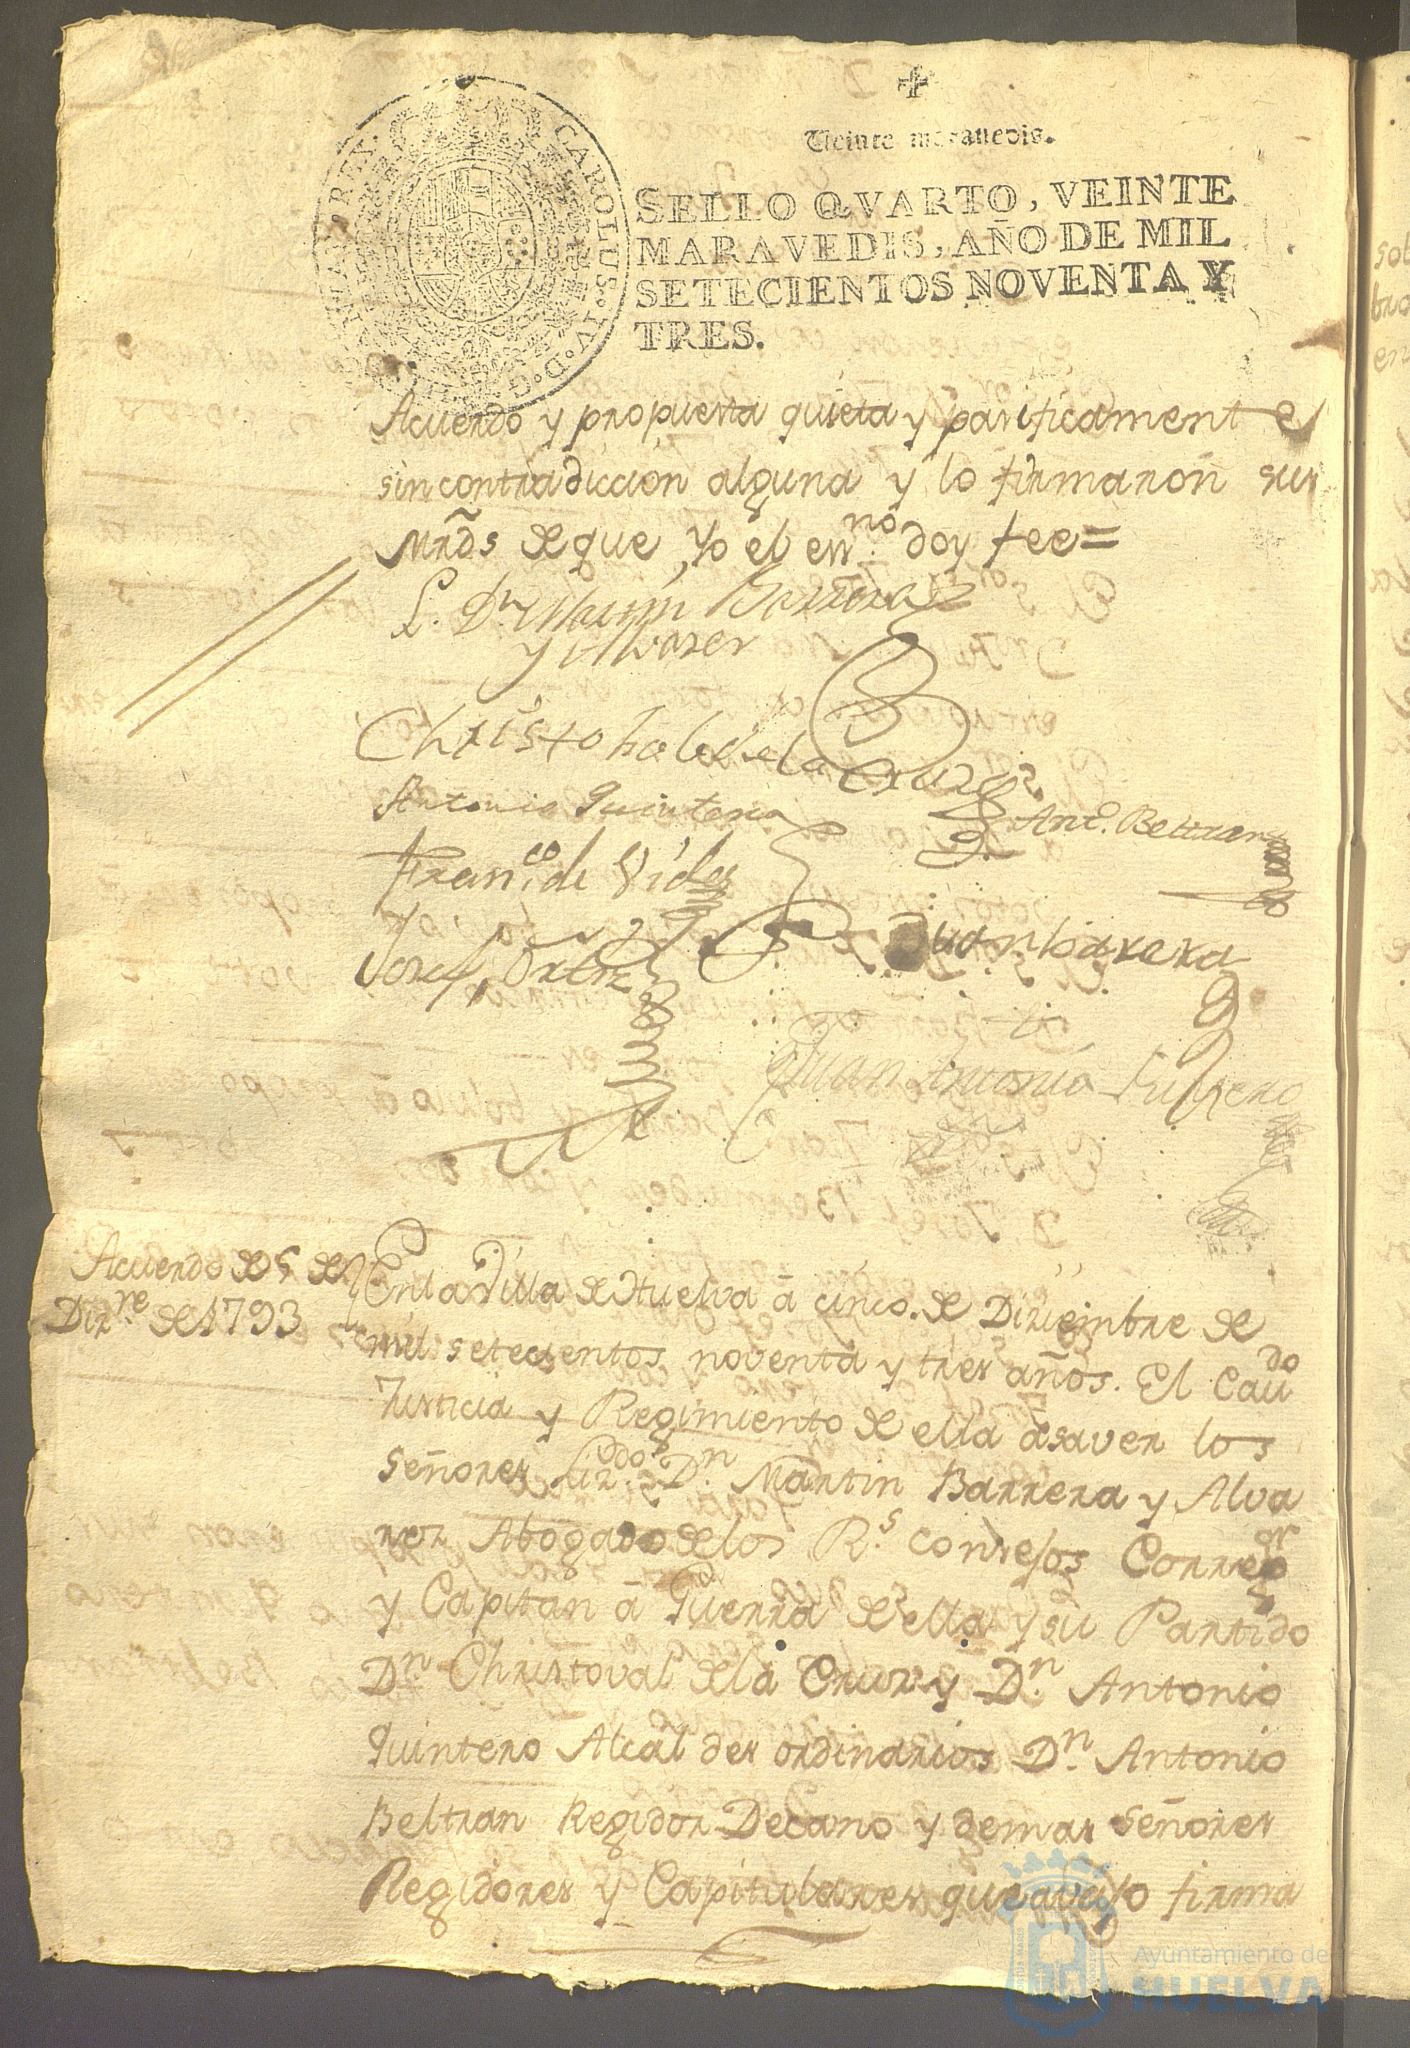 Veinte maravedis.
SELLO QVARTO, VEINTE
MARAVEDIS, AÑO DE MIL
SETECIENTOS NOVENTA Y
TRES.
CAROLUS IV D.G. HISPANIAR. REX.
Acuerdo y propuesta quieta y pasificamente
sin contradiccion alguna y lo firmaron sus
Mrds de que Yo el essno. doy fee=
L. Dn. Martin Barrera
y Alvarez
Christobal de la Cruz
Antonio Quintero
Anto. Beltran
Franco. de Vides
Juan Barrera
Josef Ortiz
Juan Antonio
Acuerdo de 5 de
Dizre de 1793
En la Villa de Huelva â cinco de Diziembre de
mil setecientos noventa y tres años. El Cavdo
Justicia y Regimiento de ella â saver los
Señores Lizdo. Dn. Martin Barrera y Alva
rez Abogado de los Rs. Consejos Corregor
y Capitan â Guerra de ella y su Partido
Dn. Christoval de la Cruz y Dn. Antonio
Quintero Alcaldes ordinarios Dn. Antonio
Beltran Regidor Decano y demas Señores
Regidores y Capitulares que avajo firma
Ayuntamiento de
HUELVA